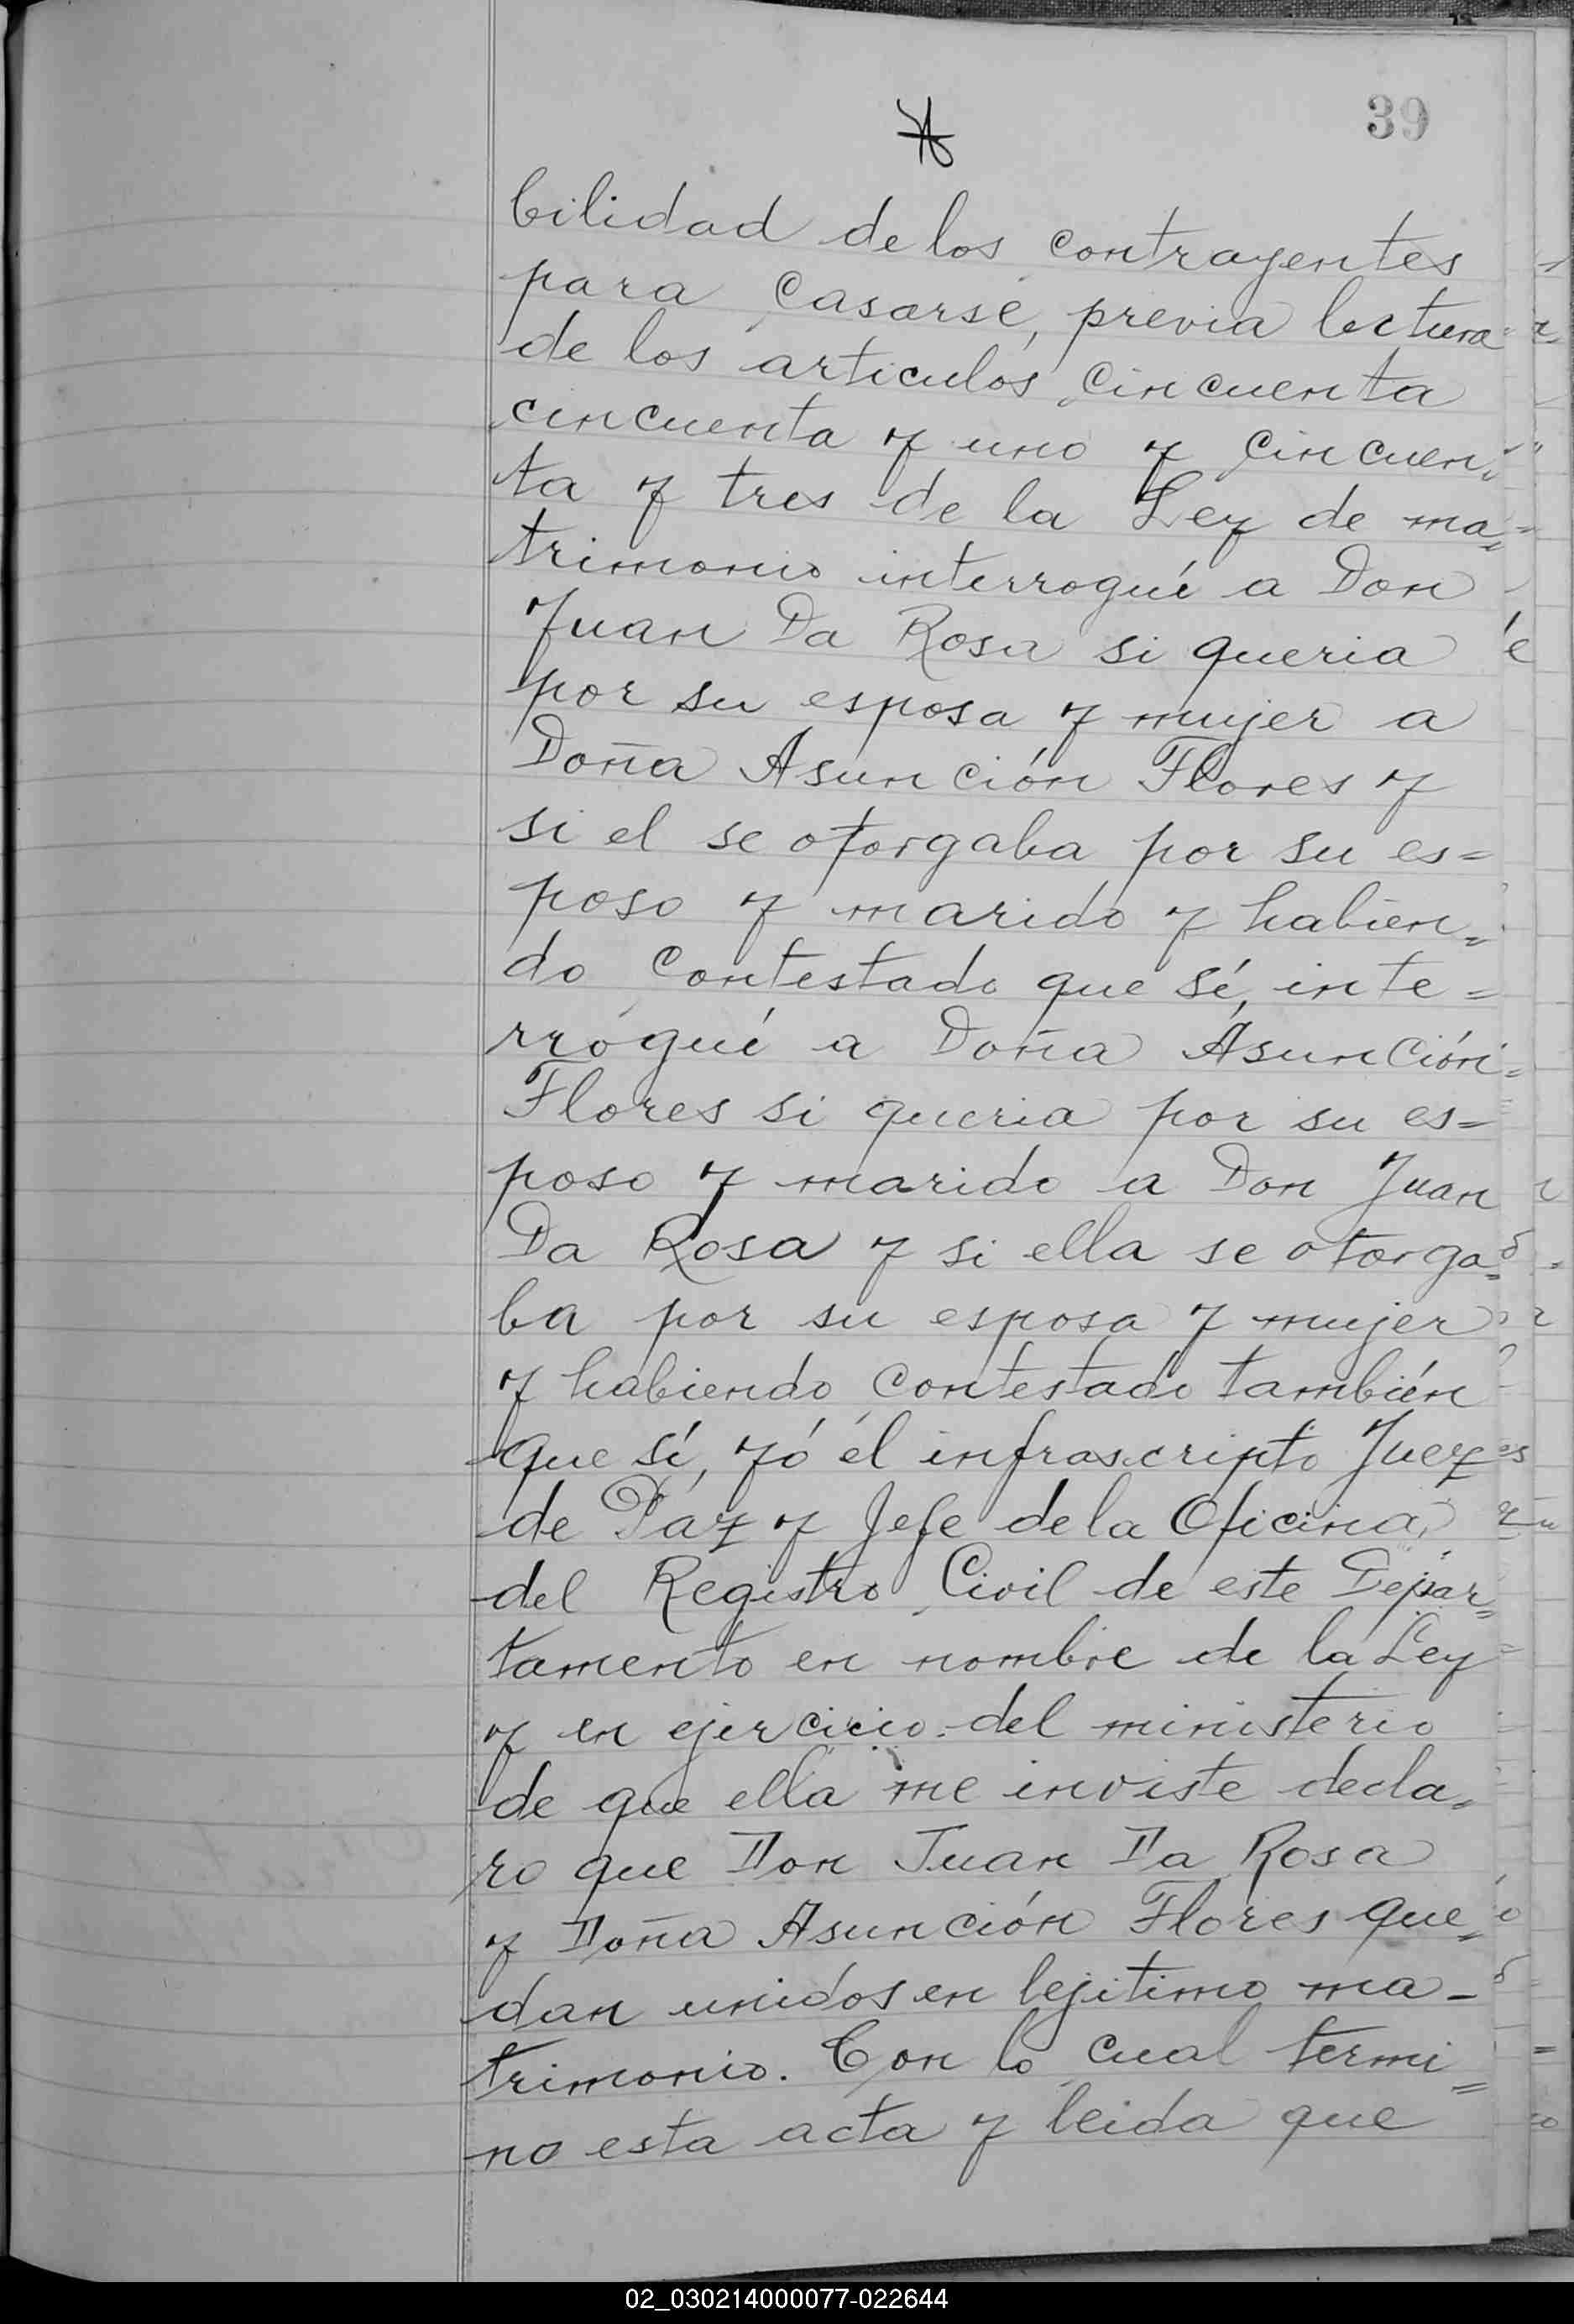 39
bilidad de los contrayentes
para casarse, previa lectura
de los articulos cincuenta
cincuenta y uno y cincuen=
ta y tres de la Ley de ma=
trimonio interrogué a Don
Juan Da Rosa si queria
por su esposa y mujer a
Doña Asunción Flores y
si el se otorgaba por su es=
poso y marido y habien=
do contestado que sí, inte=
rrogué a Doña Asunción=
Flores si queria por su es=
poso y marido a Don Juan
Da Rosa y si ella se otorga=
ba por su esposa y mujer
y habiendo contestado también
que sí, yó él infrascripto Juez
de Paz y Jefe de la Oficina
del Registro Civil de este Depar=
tamento en nombre de la Ley
y en ejercicio del ministerio
de que ella me inviste decla=
ro que Don Juan Da Rosa
y Doña Asunción Flores que=
dan unidos en lejitimo ma-
trimonio. Con lo cual termi=
no esta acta y leida que
02_030214000077-022644